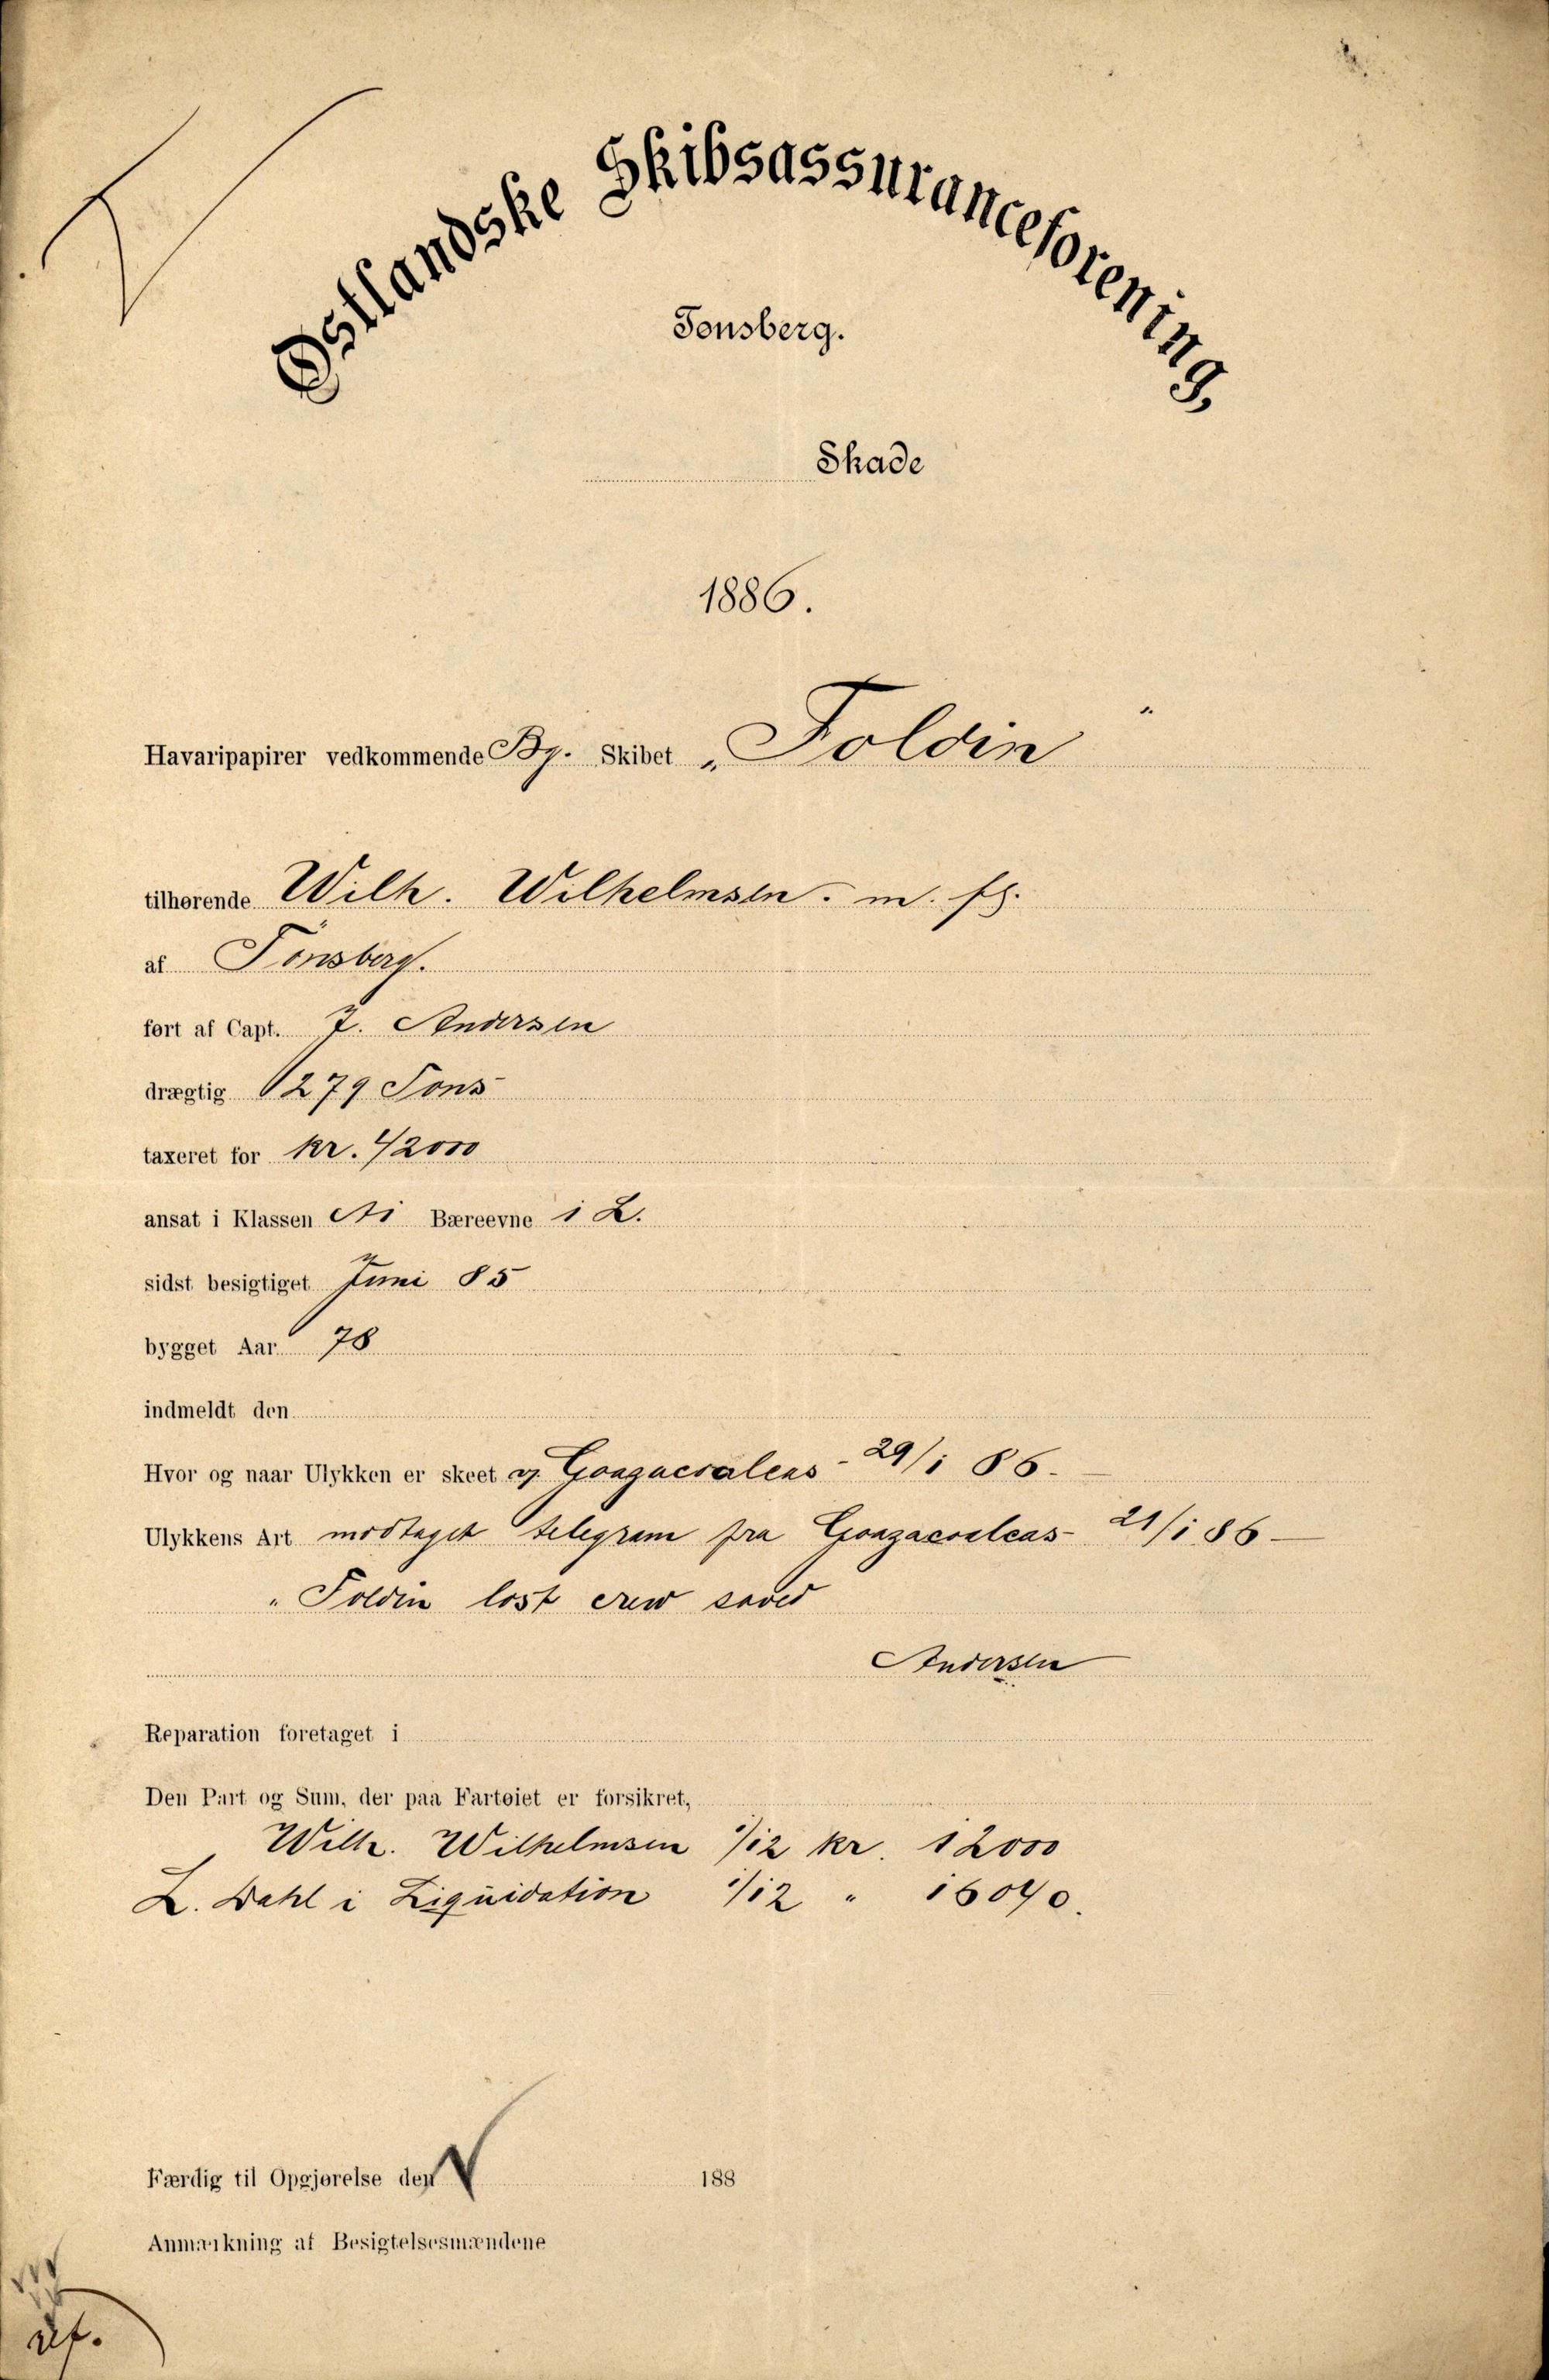 Østlandske Skibsassuranceforening,
Tønsberg.
Skade
1886.
Havaripapirer vedkommende Bg. Skibet „Foldin"
tilhørende Wilh. Wilhelmsen. m. fl.
af Tönsberg.
ført af Capt. J. Andersen
drægtig 279 Tons
taxeret for kr. 42000
ansat i Klassen A1 Bæreevne 1 L.
sidst besigtiget Juni 85
bygget Aar 78
indmeldt den
Hvor og naar Ulykken er skeet v. Goazacoalcas - 29/1 86.
Ulykkens Art modtaget telegram fra Goazacoalcas - 21/1 86 —
„Foldin lost crew saved
Andersen
Reparation foretaget i
Den Part og Sum, der paa Fartøiet er forsikret,
Wilh. Wilhelmsen /12 kr. 12000
L. Dahl i Liquidation 1/12 " 16040.
Færdig til Opgjørelse den 188
Anmærkning af Besigtelsesmændene